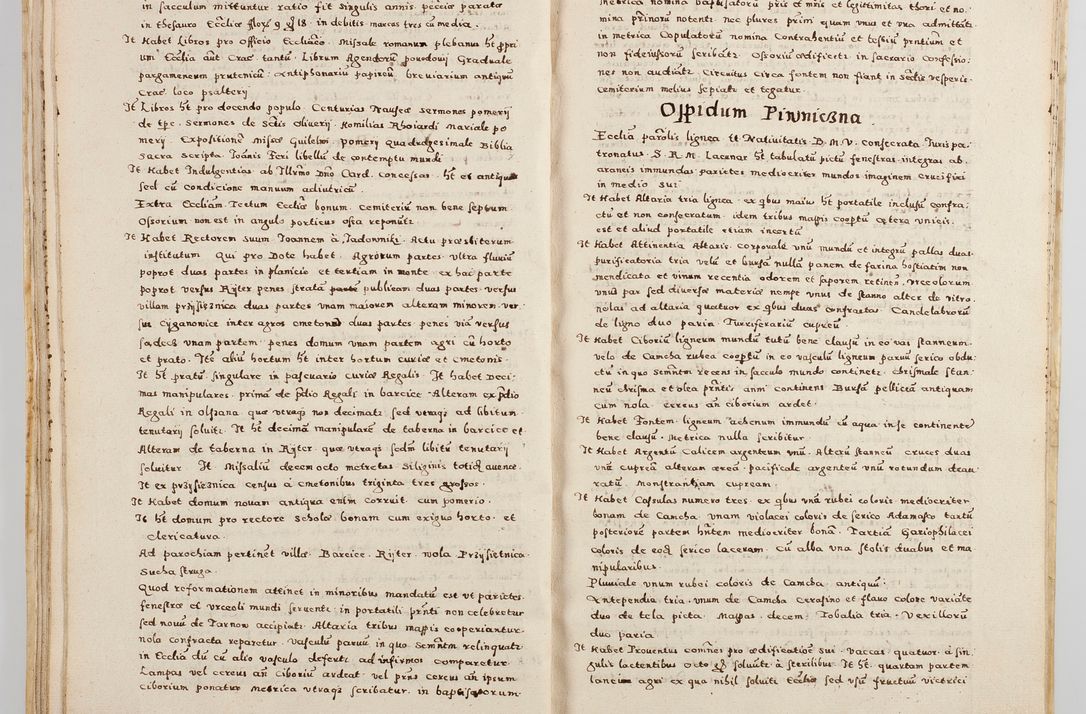 in sacculum mittuntur ratio fit singulis annis. peccia parata
in thesauro Ecclīæ flor 9 gř 18. in debitis marcas tres cū media.
It Habet Libros pro Officio Eccliāco. Missale romanum plebanus ht ppri
um Ecclia aut Crac tantū. Librum Agendorū povodovy Graduale
pargameneum prutenicū. Antiphonariū papireū breviarium antiquū
Crac loco psalterÿ
It Libros ht pro docendo populo. Centurias Nauseæ sermones pomerÿ
de tpe. Sermones de Sctis Oliverÿ. Homilias Rhoiardi Mariale po
merÿ. Expositionē Missæ Guilelmi pomerÿ quadragesimale Biblia
Sacra scripta. Joānis Feri libellū de contemptu mundi
It Habet Indulgentias ab Illmo Dno Card. concessas. ht et antiquas
sed cū condicione manuum adiutricū.
Extra Eccliam. Tectum Eccliæ bonum. Cemiteriū non bene septum
Ossorium non est in angulo porticus ossa reponūt.
It Habet Rectorem suum Joannem à Jadowniki. Actu præsbiterum
institutum Qui pro Dote habet. Agrorum partes. ultra fluviū
poprot duas partes in planicie et tertiam in monte. ex hac parte
poprot versus Ryter penes strata publicam duas partes. versus
villam przysietznica duas partes unam maiorem alteram minorem. ver
sus Cyganowice inter agros cmetonū duas partes penes viā versus
Sądecz unam partem. penes domum unam partem agri cū horto
et prato. Ite aliū hortum ht inter hortum curiæ et cmetonis.
It ht pratū. singulare in pascuario curiæ Regalis. It habet Deci
mas manipulares. prima de pdio Regali in barcice. Alteram ex pdio
Regali in Olszana quæ utraqs non decimatr sed utraqs ad libitum
tenutarÿ solvitr. It ht decimā manipularē de taberna in barcice et
Alteram de taberna in Ryter. quæ utraqs sedm libitū tenutarÿ
solvitur It Missaliū decem octo metretas. Siliginis totidē avenæ.
It ex przysietznica census à cmetonibus triginta tres grossos.
It Habet domum novam antiqua enim corruit. cum pomerio.
It ht domum pro rectore scholæ bonam cum exiguo horto. et
clericatura.
Ad parochiam pertinēt villæ. Barcice. Ryter. wola Przysietnica
Sucha struga.
Quod reformationem attinet in minoribus mandatū est ut parietes
fenestræ et urceoli mundi serventr. in portatili prnti non celebretur
sed novū de Tarnow accipiatr. Altaria tribus mappis cooperiantur.
nola confracta reparetur. Vasculū parvū in quo Semntm relinquatr
in Ecclia dū cū alio vasculo defertr ad infirmos comparetur.
Lampas vel cereus añ ciboriū ardeat. vel prns cereus añ ipsum
Ciborium ponatur Metrica utraqs scribatur. in baptisatorum
Metrica nomina baptisatorū pris et mris et legitimitas thori et no
mina prinorū notentr. nec plures prim quam unus et una admittātr
in metrica Copulatorū nomina Contrahentiū et testiū prntium et
non fideiussorū scribātr. Ossoriū ædificetr in sacrario Confessio
nes non audiātr. Circuitus circa fontem non fiant in Sectis vesperis.
Cemiterium melius sepiatr et tegatur.
Oppidum Piwniczna
Ecclia parolis lignea tt Nativitatis B. M. V. consecrata Juris pa
tronatus S. R. M. Lacunar ht tabulatū pictū fenestras integras ab
araneis immundas parietes mediocriter mundos imaginem crucifixi
in medio sui
It Habet Altaria tria lignea. ex qbus maius ht portatile inclusū confra
ctū et non consecratum. idem tribus mappis cooptū cętera unicis.
est et aliud portatile etiam incertū
It Habet Attinentia Altaris. Corporale unū mundū et integrū pallas duas
purificatoria tria velū et bursā nullā panem de farina hostiatim non
mendicata et vinum recentia odorem et saporem retinēt. Vrceolorum
unū par sed diversæ materiæ nempe unus de stanno alter de vitro.
nolas ad altaria quatuor ex qbus duæ confractæ. Candelabrorū
de ligno duo paria. Turriferariū cupreū
It Habet Ciboriū ligneum mundū tutū bene clausū in eo vas stanneum.
velo de Camcha rubea cooptū in eo vasculū ligneum parvū serico obdu
ctū in quo Semntm recens in sacculo mundo continetr. Chrismale stan
neū chrisma et olea prntis anni continens. Bursā pelliceā antiquam
cum nola. cereus añ ciborium ardet.
It Habet Fontem ligneum achenum immundū cū aqua in se continente
bene clausū. Metrica nulla scribitur.
It Habet Argentū Calicem argenteum unū. Alterū stanneū cruces duas
unā cupreā alteram æreā. pacificale argenteū unū rotundum deau
ratū. Monstrantiam cupream.
It Habet Casulas numero tres. ex qbus unā rubei coloris mediocriter
bonam de Camcha. unam violacei coloris de serico Adamasco tantū
posteriorē partem hntem mediocriter bonā. Tertiā Gariophilacei
coloris de eodē serico laceram. Cū alba una stolis duabus et ma
nipularibus.
Pluviale unum rubei coloris de Camcha antiquū.
Antependia tria. unum de Camcha Cerasino et flavo colore variāte
duo de tela picta. Mappas decem. Tobalia tria. Vexillorū
duo paria.
It Habet Proventus comnes pro ædificatiōe sui vaccas quatuor. à sin
gulis lactentibus octo gř solvūtr à sterilibus It ht quartam partem
lanei agri ex qua nihil solvitr Eccliæ sed usū fructuū victrici